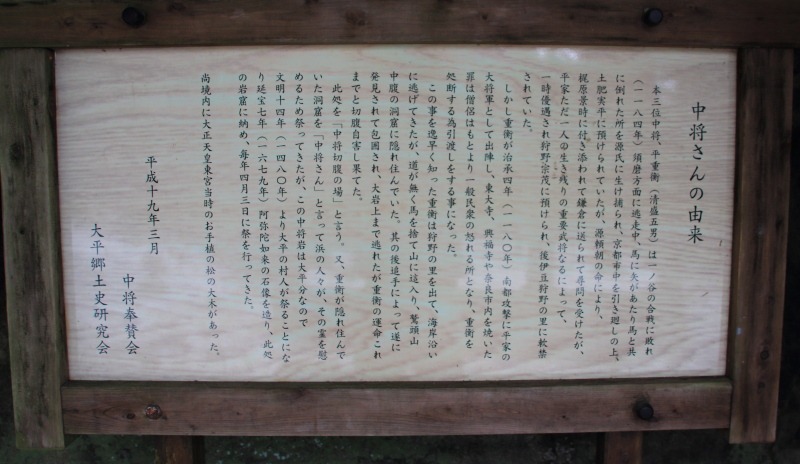 中将さんの由来
本三位中将、平重衡(清盛五男)は一ノ谷の合戦に敗れ
(一一八四年)須磨方面に逃走中、馬に矢があたり馬と共
に倒れた所を源氏に生け捕られ、京都市中を引き廻しの上、
土肥実平に預けられていたが、源頼朝の命により、
梶原景時に付き添われて鎌倉に送られて尋問を受けたが、
平家ただ一人の生き残りの重要武将なるによって、
一時優遇され狩野宗茂に預けられ、後伊豆狩野の里に軟禁
されていた。
しかし重衡が治承四年(一一八〇年)南都攻撃に平家の
大将軍として出陣し、東大寺、興福寺や奈良市内を焼いた
罪は僧侶はもとより一般民衆の怒れる所となり、重衡を
処断する為引渡しをする事になった。
この事を逸早く知った重衡は狩野の里を出て、海岸沿い
に逃げてきたが、道が無く馬を捨て山に這入り、鷲頭山
中腹の洞窟に隠れ住んでいた。其の後追手によって遂に
発見されて包囲され、大岩上まで逃れたが重衡の運命これ
までと切腹自害し果てた。
此処を「中将切腹の場」と言う。又、重衡が隠れ住んで
いた洞窟を「中将さん」と言って浜の人々が、その霊を慰
めるため祭ってきたが、この中将岩は大平分なので
文明十四年(一四八〇年)より大平の村人が祭ることにな
り延宝七年(一六七九年)阿弥陀如来の石像を造り、此処
の岩窟に納め、毎年四月三日に祭を行ってきた。
尚境内に大正天皇東宮当時のお手植の松の大木があった。
平成十九年三月
中将奉賛会
大平郷土史研究会